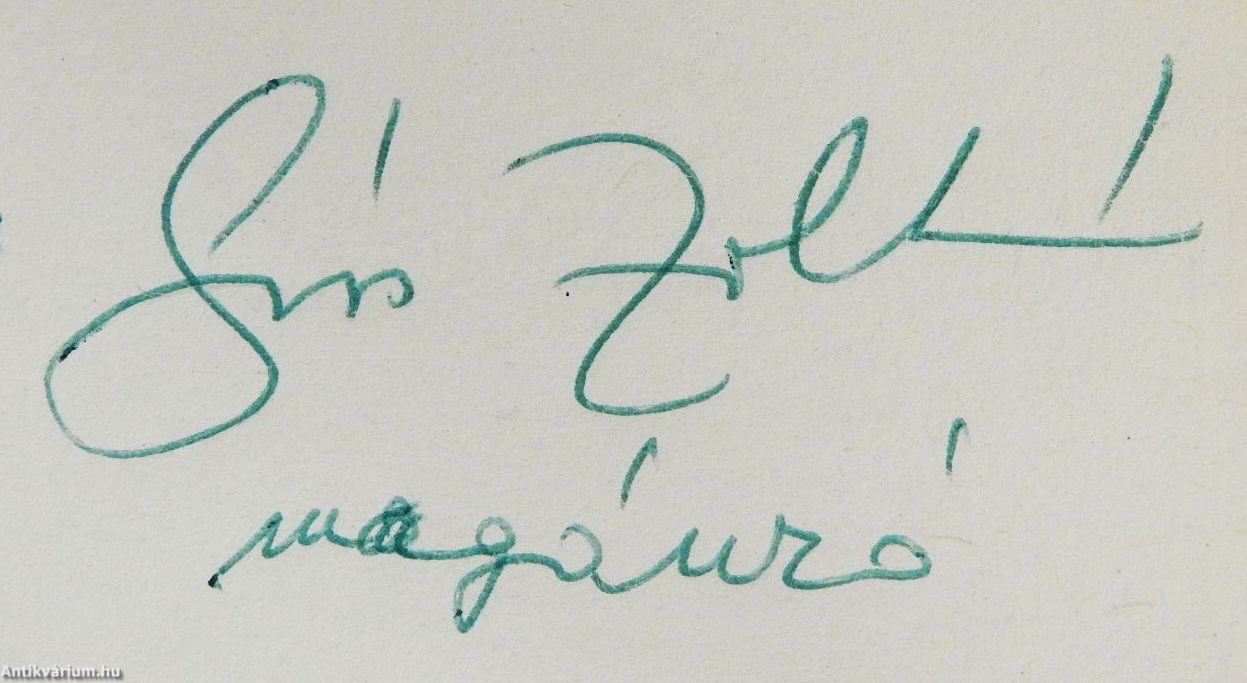 Soós Zoltán
magánzó
Antikvárium.hu